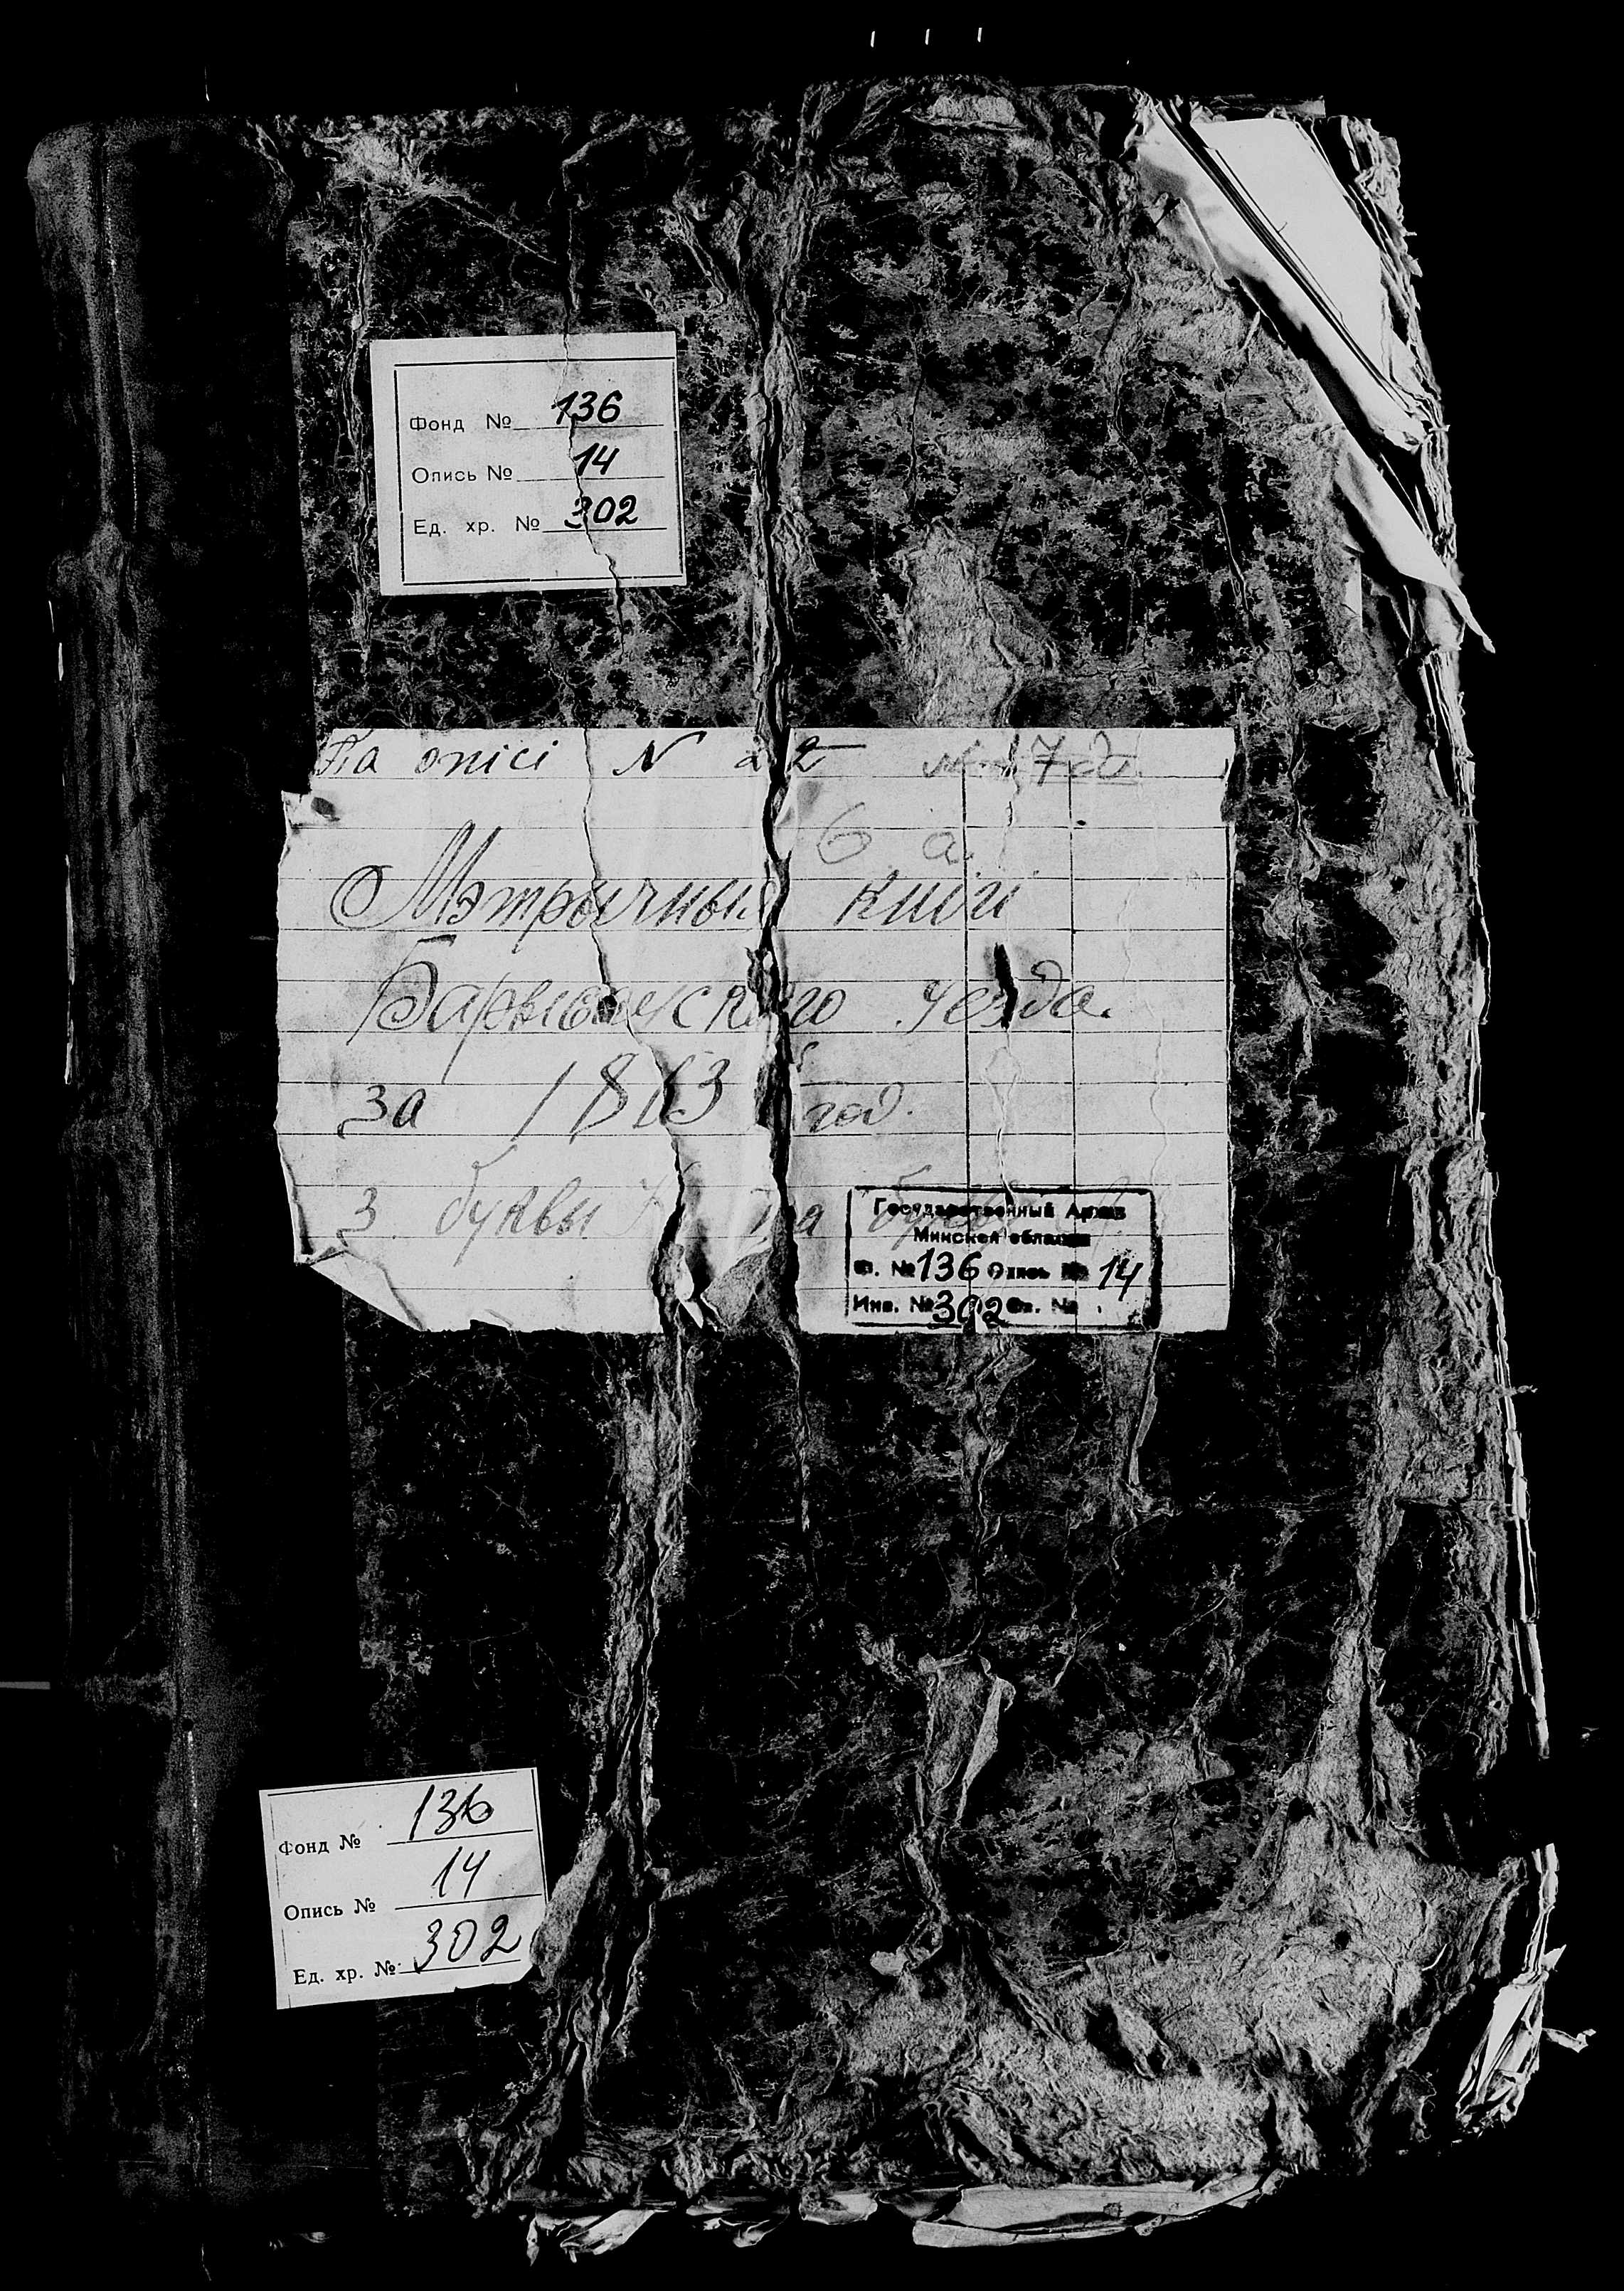 Фонд № 136
Опись № 14
Ед. хр. № 302
Па опісі N 22
6 а
Мэтрычныя кнігі
Барысаўскаго уезда.
за 1863 год.
З буквы на букву
Государственный Архив
Минской области
Ф. № 136 Опись № 14
Инв. № 302 Св. №
Фонд № 136
Опись № 14
Ед. хр. № 302